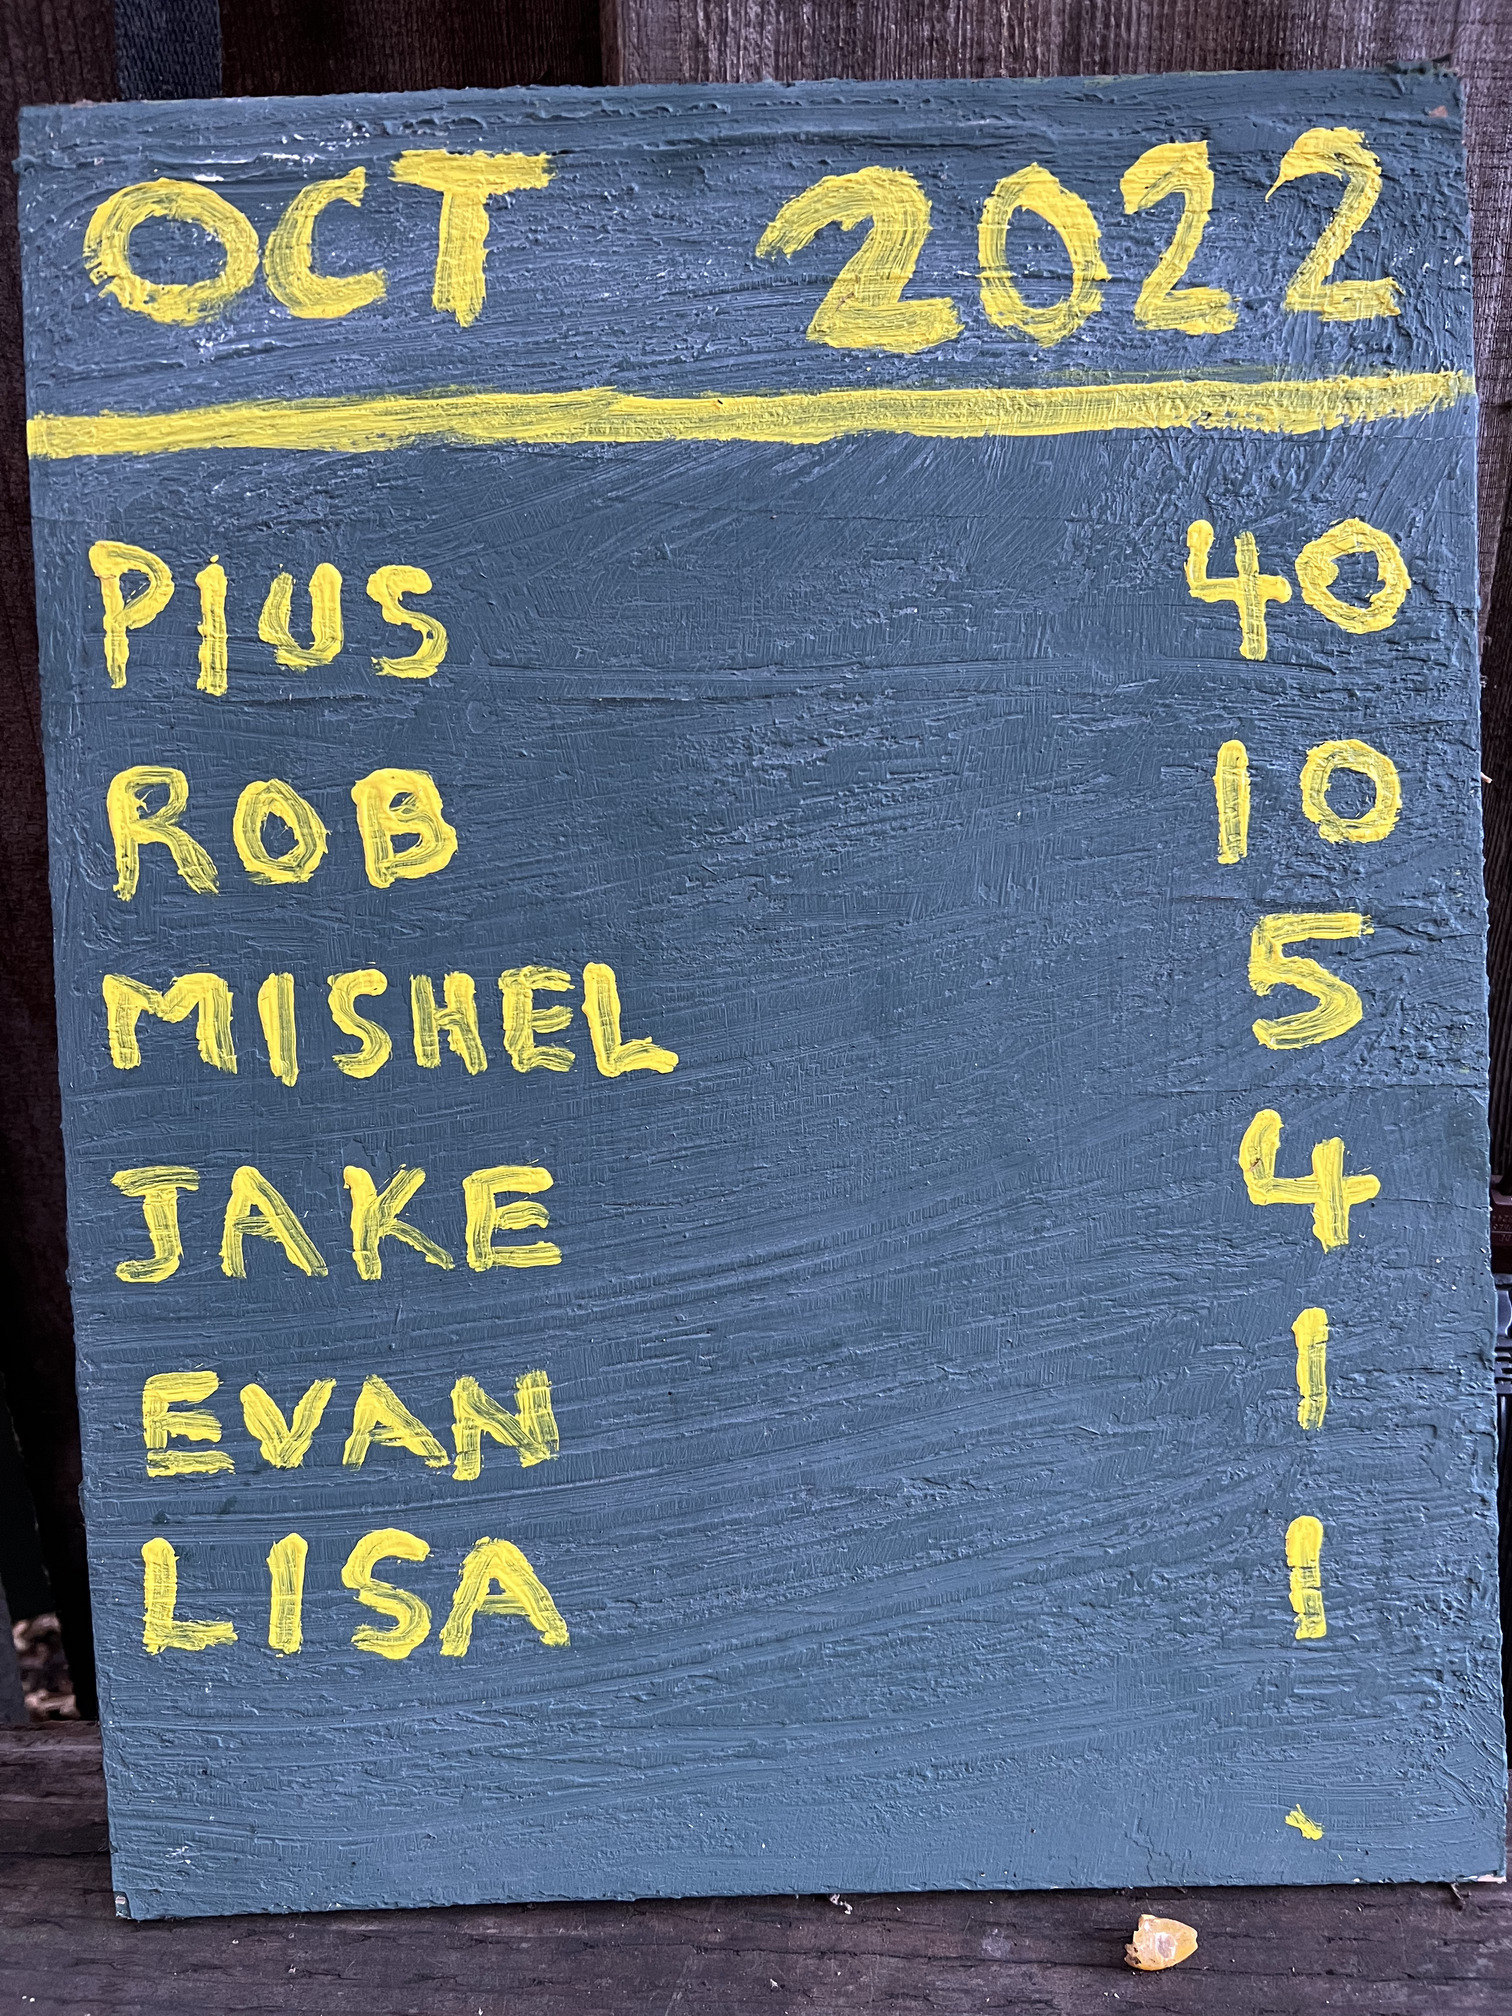 OCT 2022
PIUS 40
ROB 10
MISHEL 5
JAKE 4
EVAN 1
LISA 1